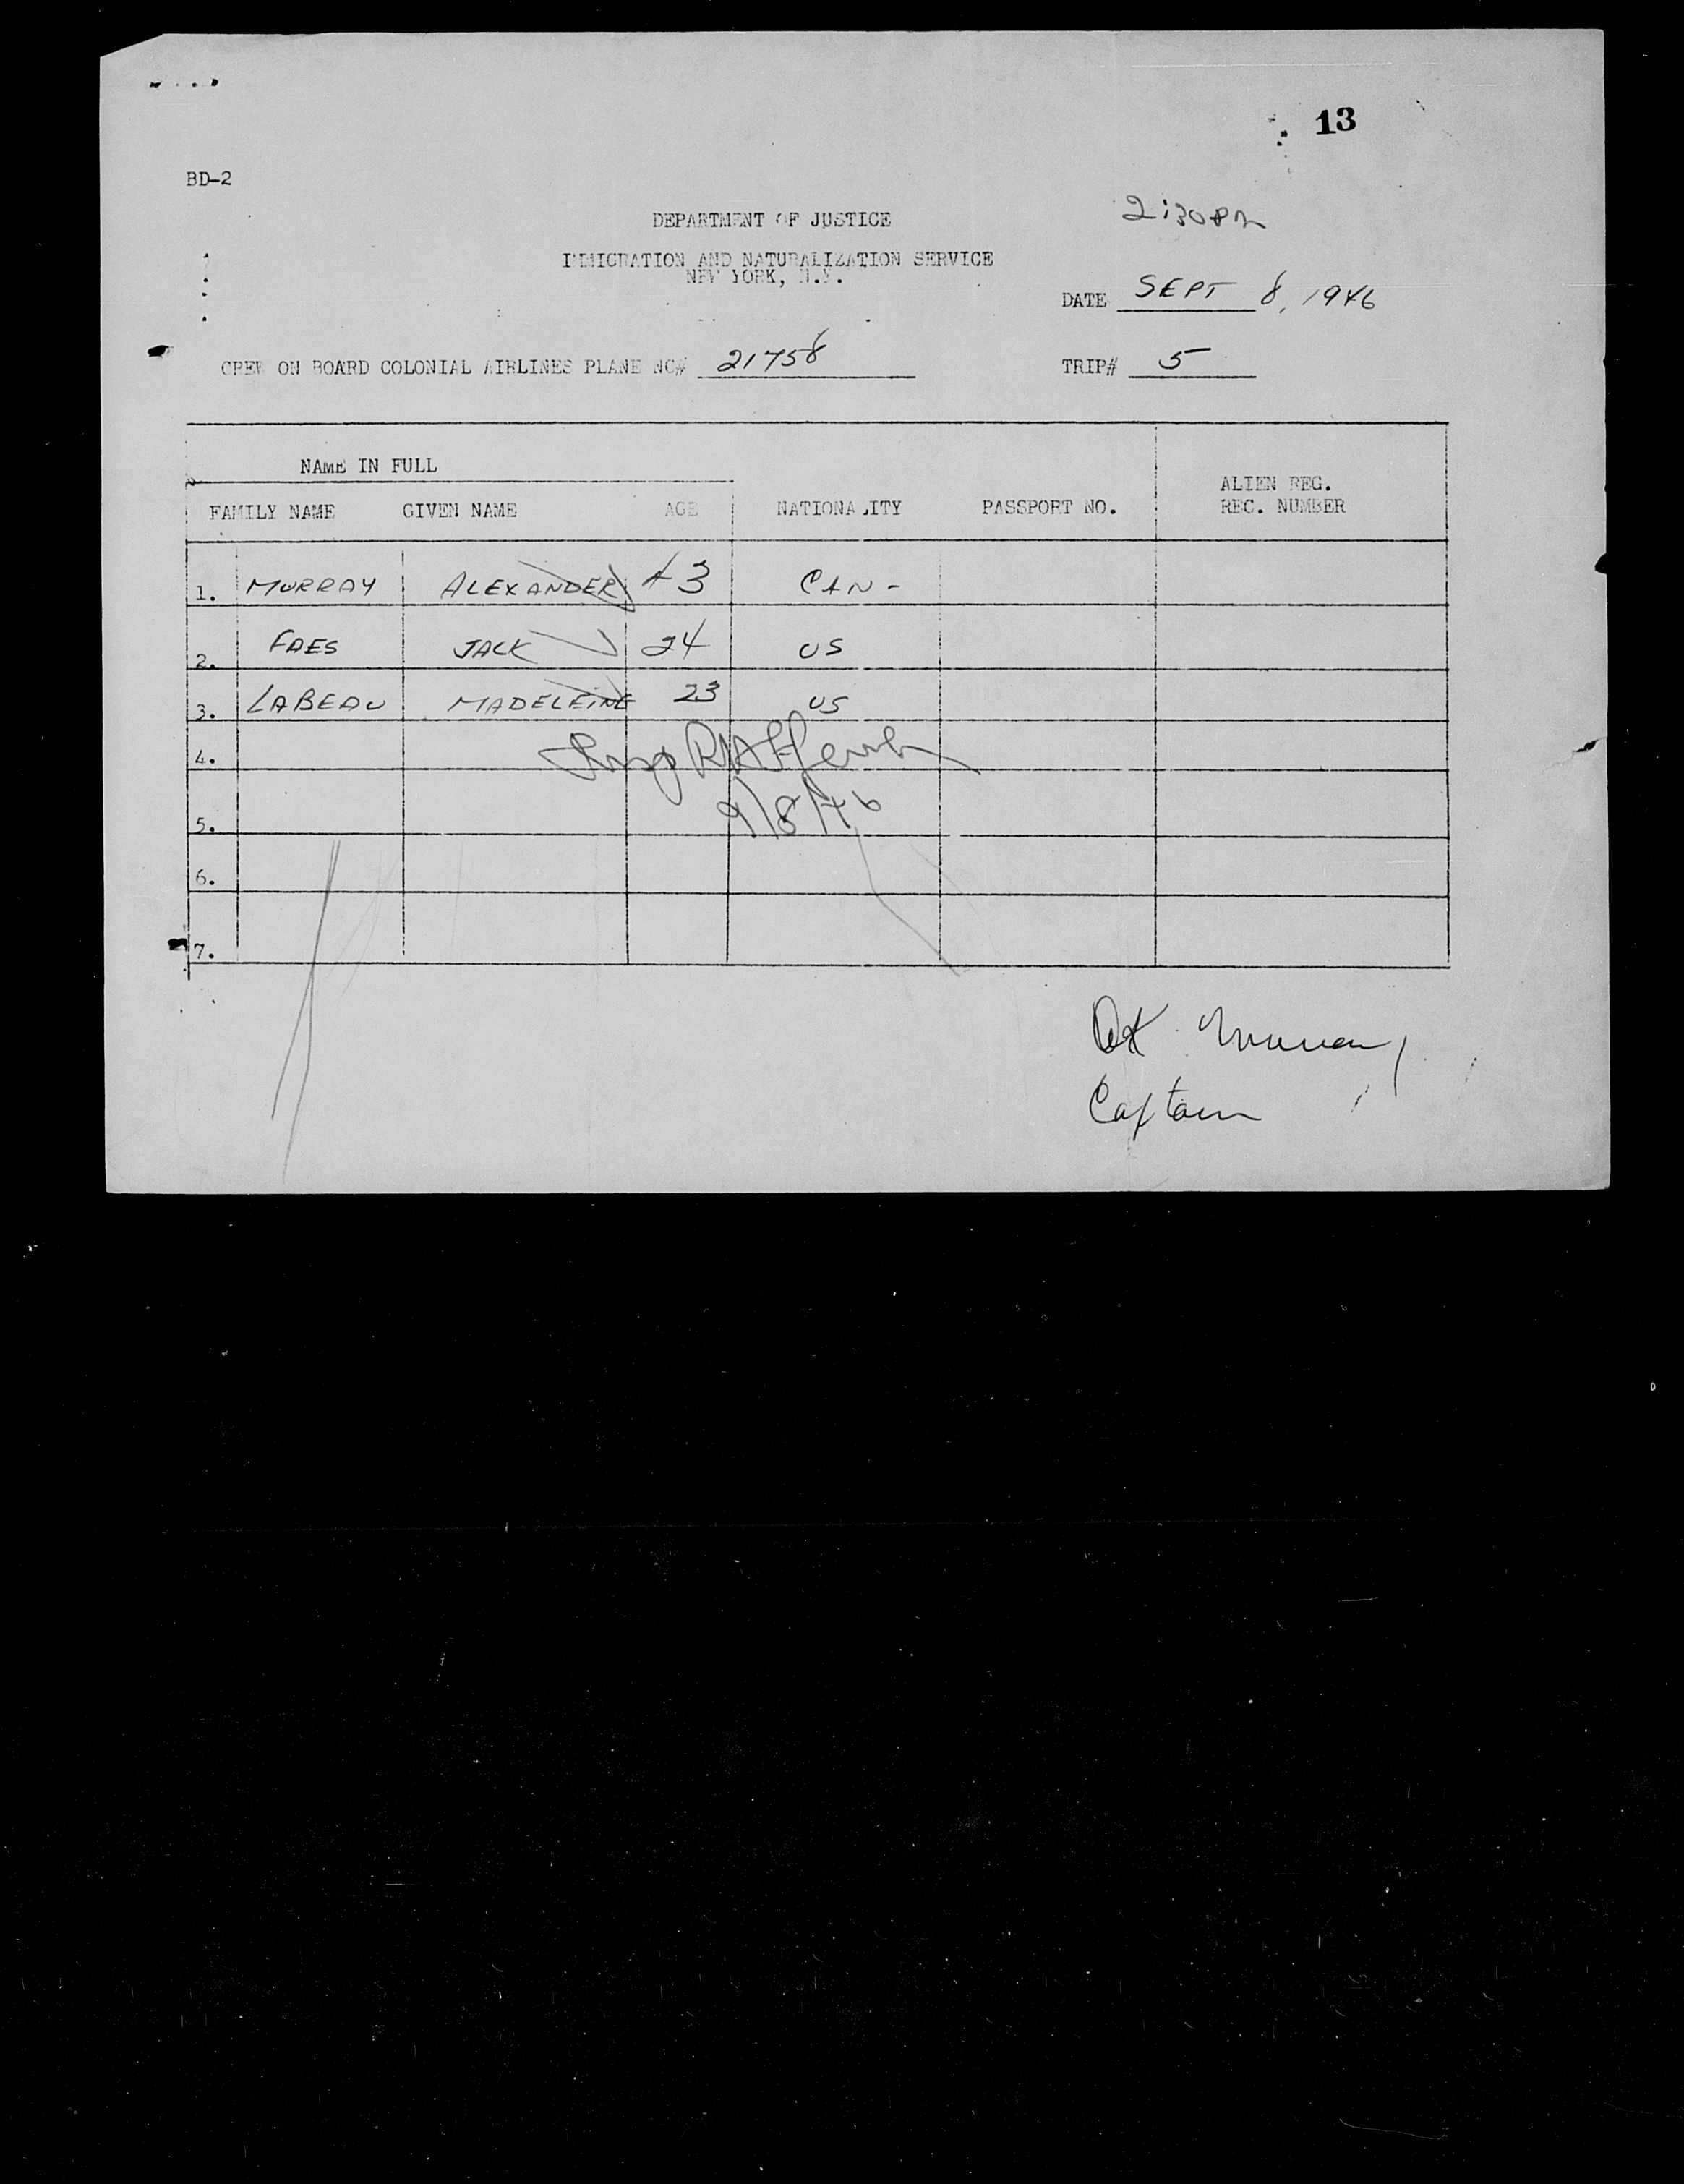 13
BD-2
2:30 PM
DEPARTMENT OF JUSTICE
IMMIGRATION AND NATURALIZATION SERVICE
NEW YORK, N.Y.
DATE SEPT 8, 1946
CREW ON BOARD COLONIAL AIRLINES PLANE NC# 21758 TRIP# 5
NAME IN FULL
FAMILY NAME GIVEN NAME AGE NATIONALITY PASSPORT NO. ALIEN REG. REC. NUMBER
1. MURRAY ALEXANDER 43 CAN-
2. FAES JACK 24 US
3. LABEAU MADELEINE 23 US
4.
9/8/46
5.
6.
7.
Murray
Captain